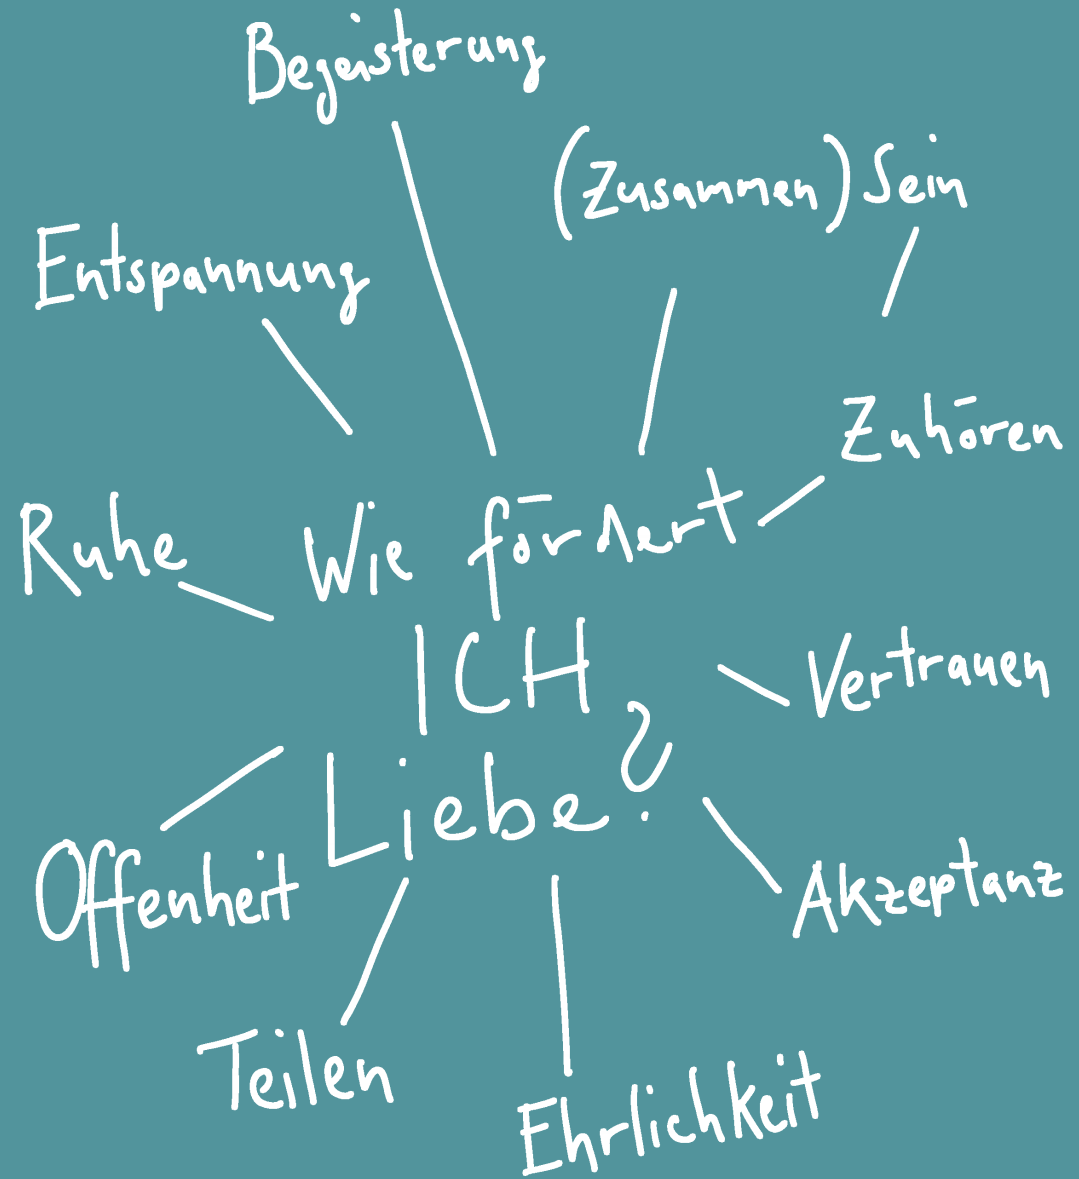 Begeisterung
(Zusammen) Sein
Entspannung
Zuhören
Ruhe
Wie fördert
ICH
Liebe?
Vertrauen
Offenheit
Akzeptanz
Teilen
Ehrlichkeit